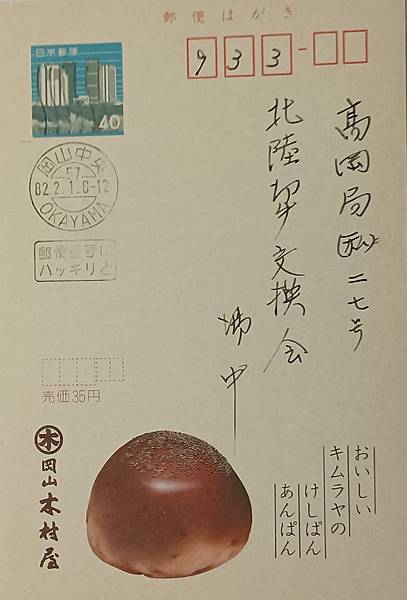 郵便はがき
日本郵便
40
933
岡山中央
57
82.2.1.6-12
OKAYAMA
郵便番号は
ハッキリと
高岡局
二七号
北陸
交換会
御中
売価35円
木
岡山木村屋
おいしい
キムラヤの
けしぱん
あんぱん